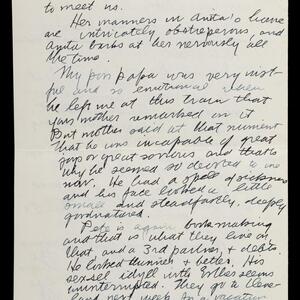 to meet us.
Her manners in Anita's home
are intricately obstreperous, and
Anita barbs at her nervously all
the time.
My poor papa was very
and so emotional when
he left me at this train that
your mother remarked on it
But mother said at that moment
that he was incapable of great
joys or great sorrows and that's
why he seemed so devoted to me
now. He had a spell of sickness
and his face looked a little
and steadfastly, deeply
goodnatured.
Pete is again bookmaking
and that is what they live on
that, and a 3rd partner, + debts
He looked thinner + better. His
idyll with seems
uninterrupted. They go to
next week for a vacation